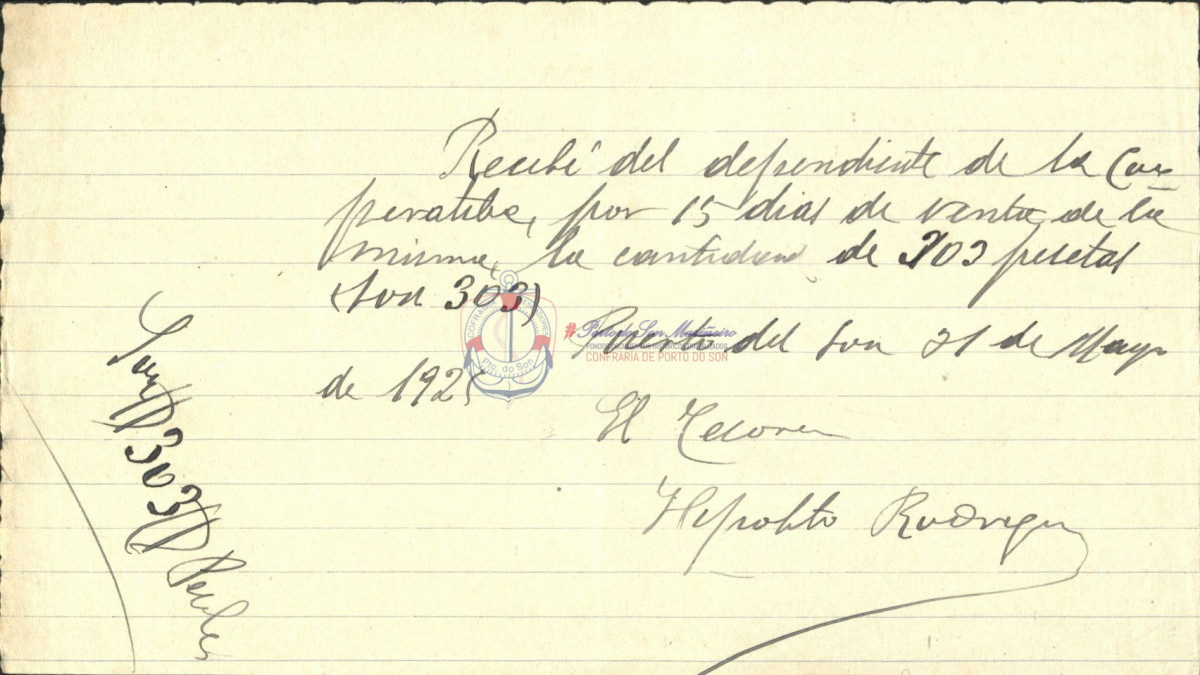 Recibí del dependiente de la Coo-
peratiba, por 15 dias de venta de la
misma, la cantidad de 303 pesetas
(Son 303)
Puerto del Son 21 de Mayo
de 1925
El Tesorero
Hipolito Rodriguez
Son 303
COFRADÍA PESCADORES
Pto. do Son
#Porto do Son Mariñeiro
CONFRARÍA DE PORTO DO SON